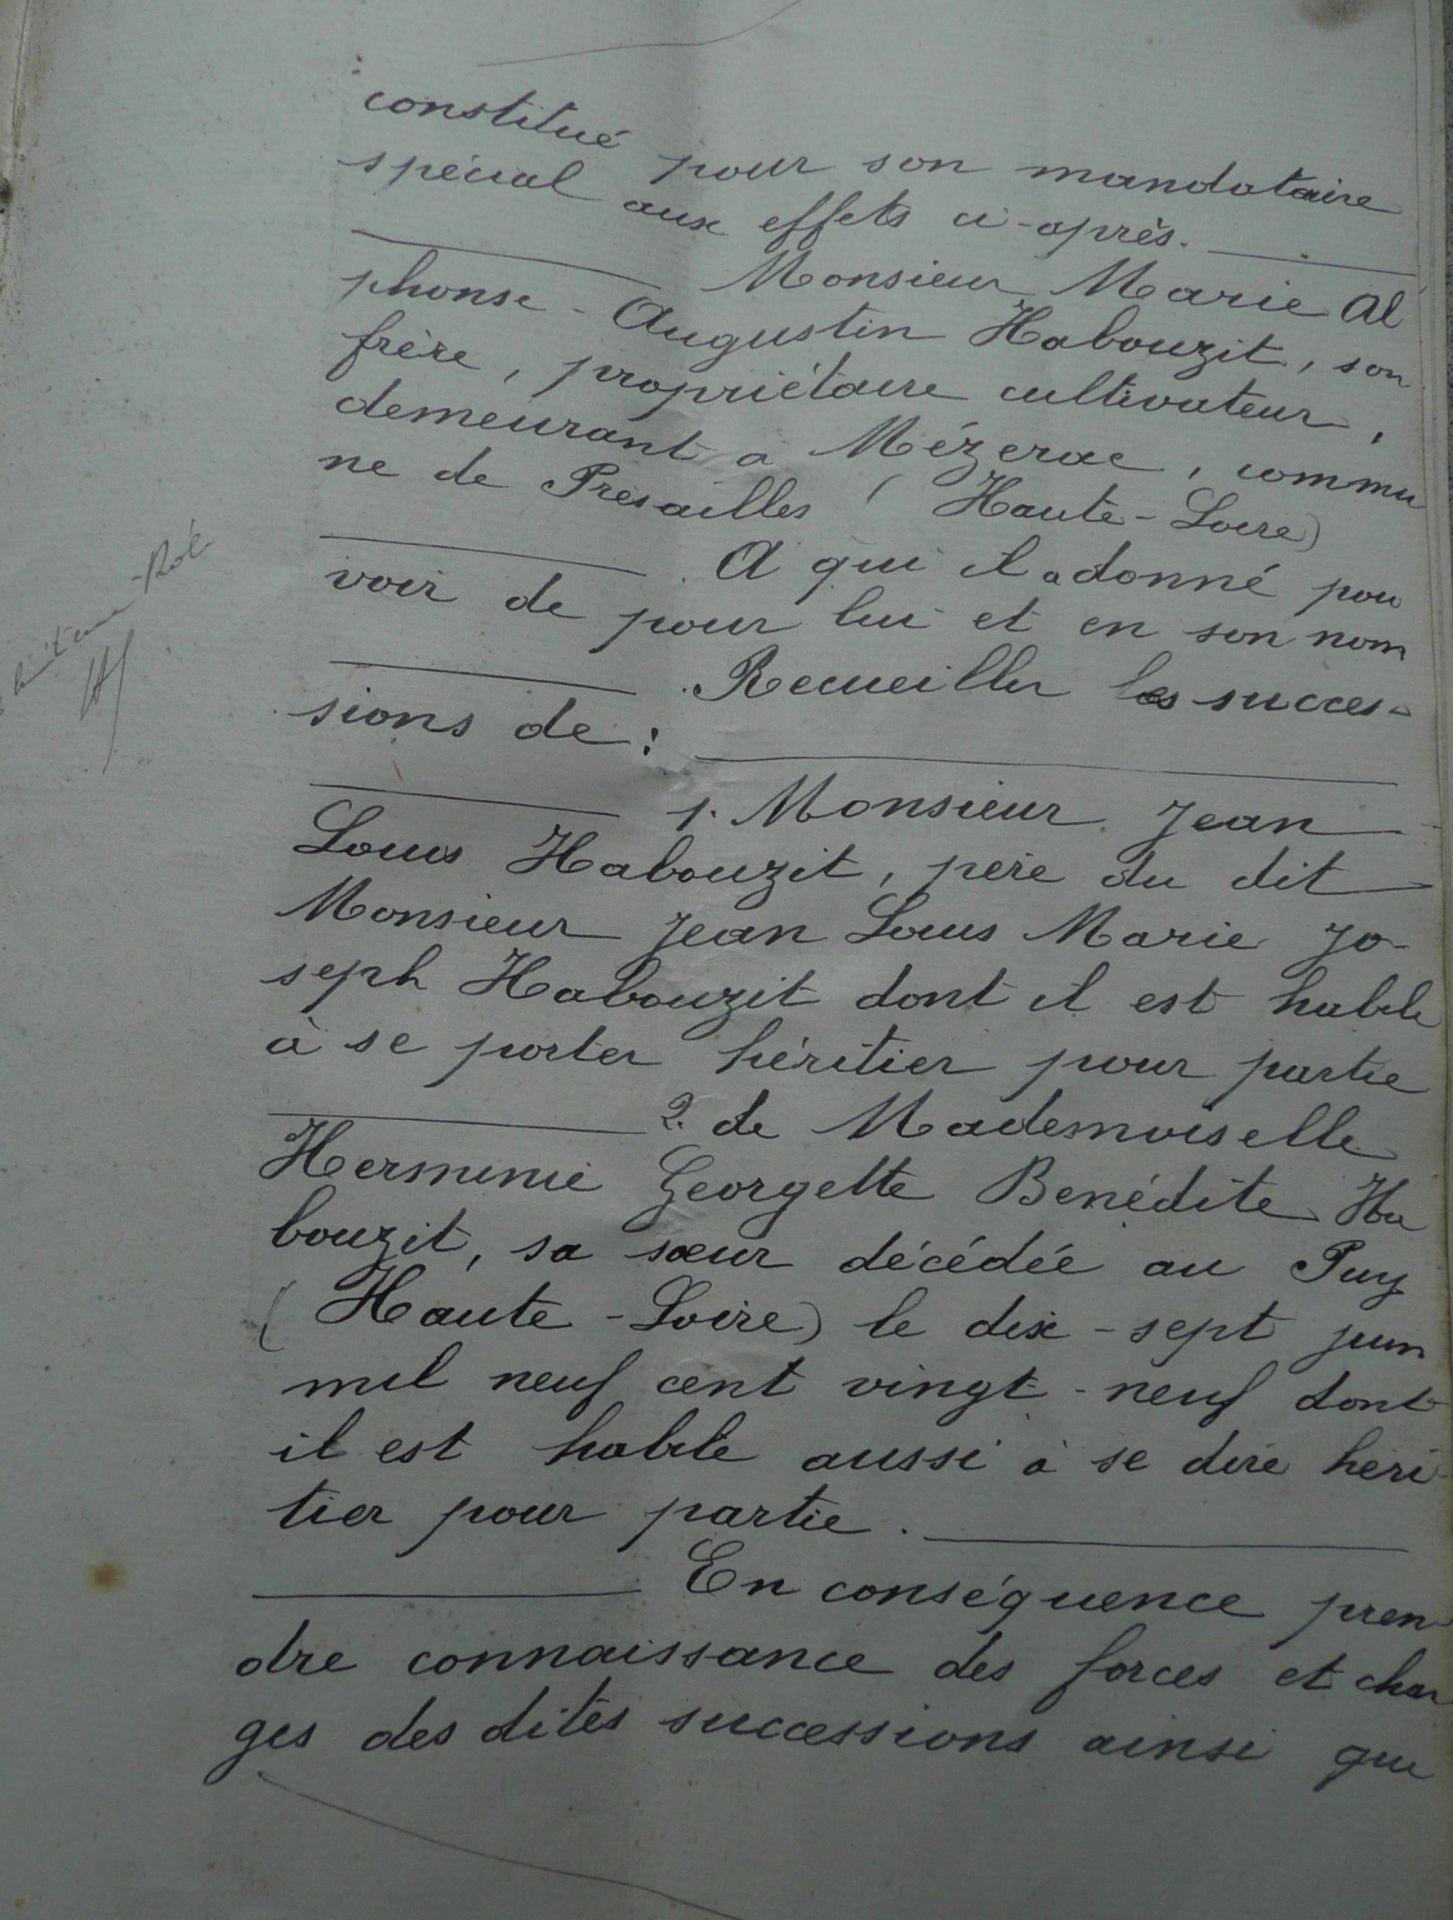 constitué pour son mandataire
spécial aux effets ci-après.
Monsieur Marie Al
phonse-Augustin Habouzit, son
frère, propriétaire cultivateur,
demeurant a Mézerac, commu
ne de Présailles (Haute-Loire)
A qui il a donné pou
voir de pour lui et en son nom
Recueillir les succes-
sions de:
1. Monsieur Jean
Louis Habouzit, père du dit
Monsieur Jean Louis Marie Jo-
seph Habouzit dont il est habile
à se porter héritier pour partie
2. de Mademoiselle
Herminie Georgette Benédite Ha
bouzit, sa sœur décédée au Puy
(Haute-Loire) le dix-sept juin
mil neuf cent vingt-neuf dont
il est habile aussi à se dire héri
tier pour partie.
En conséquence pren
dre connaissance des forces et char
ges des dites successions ainsi que